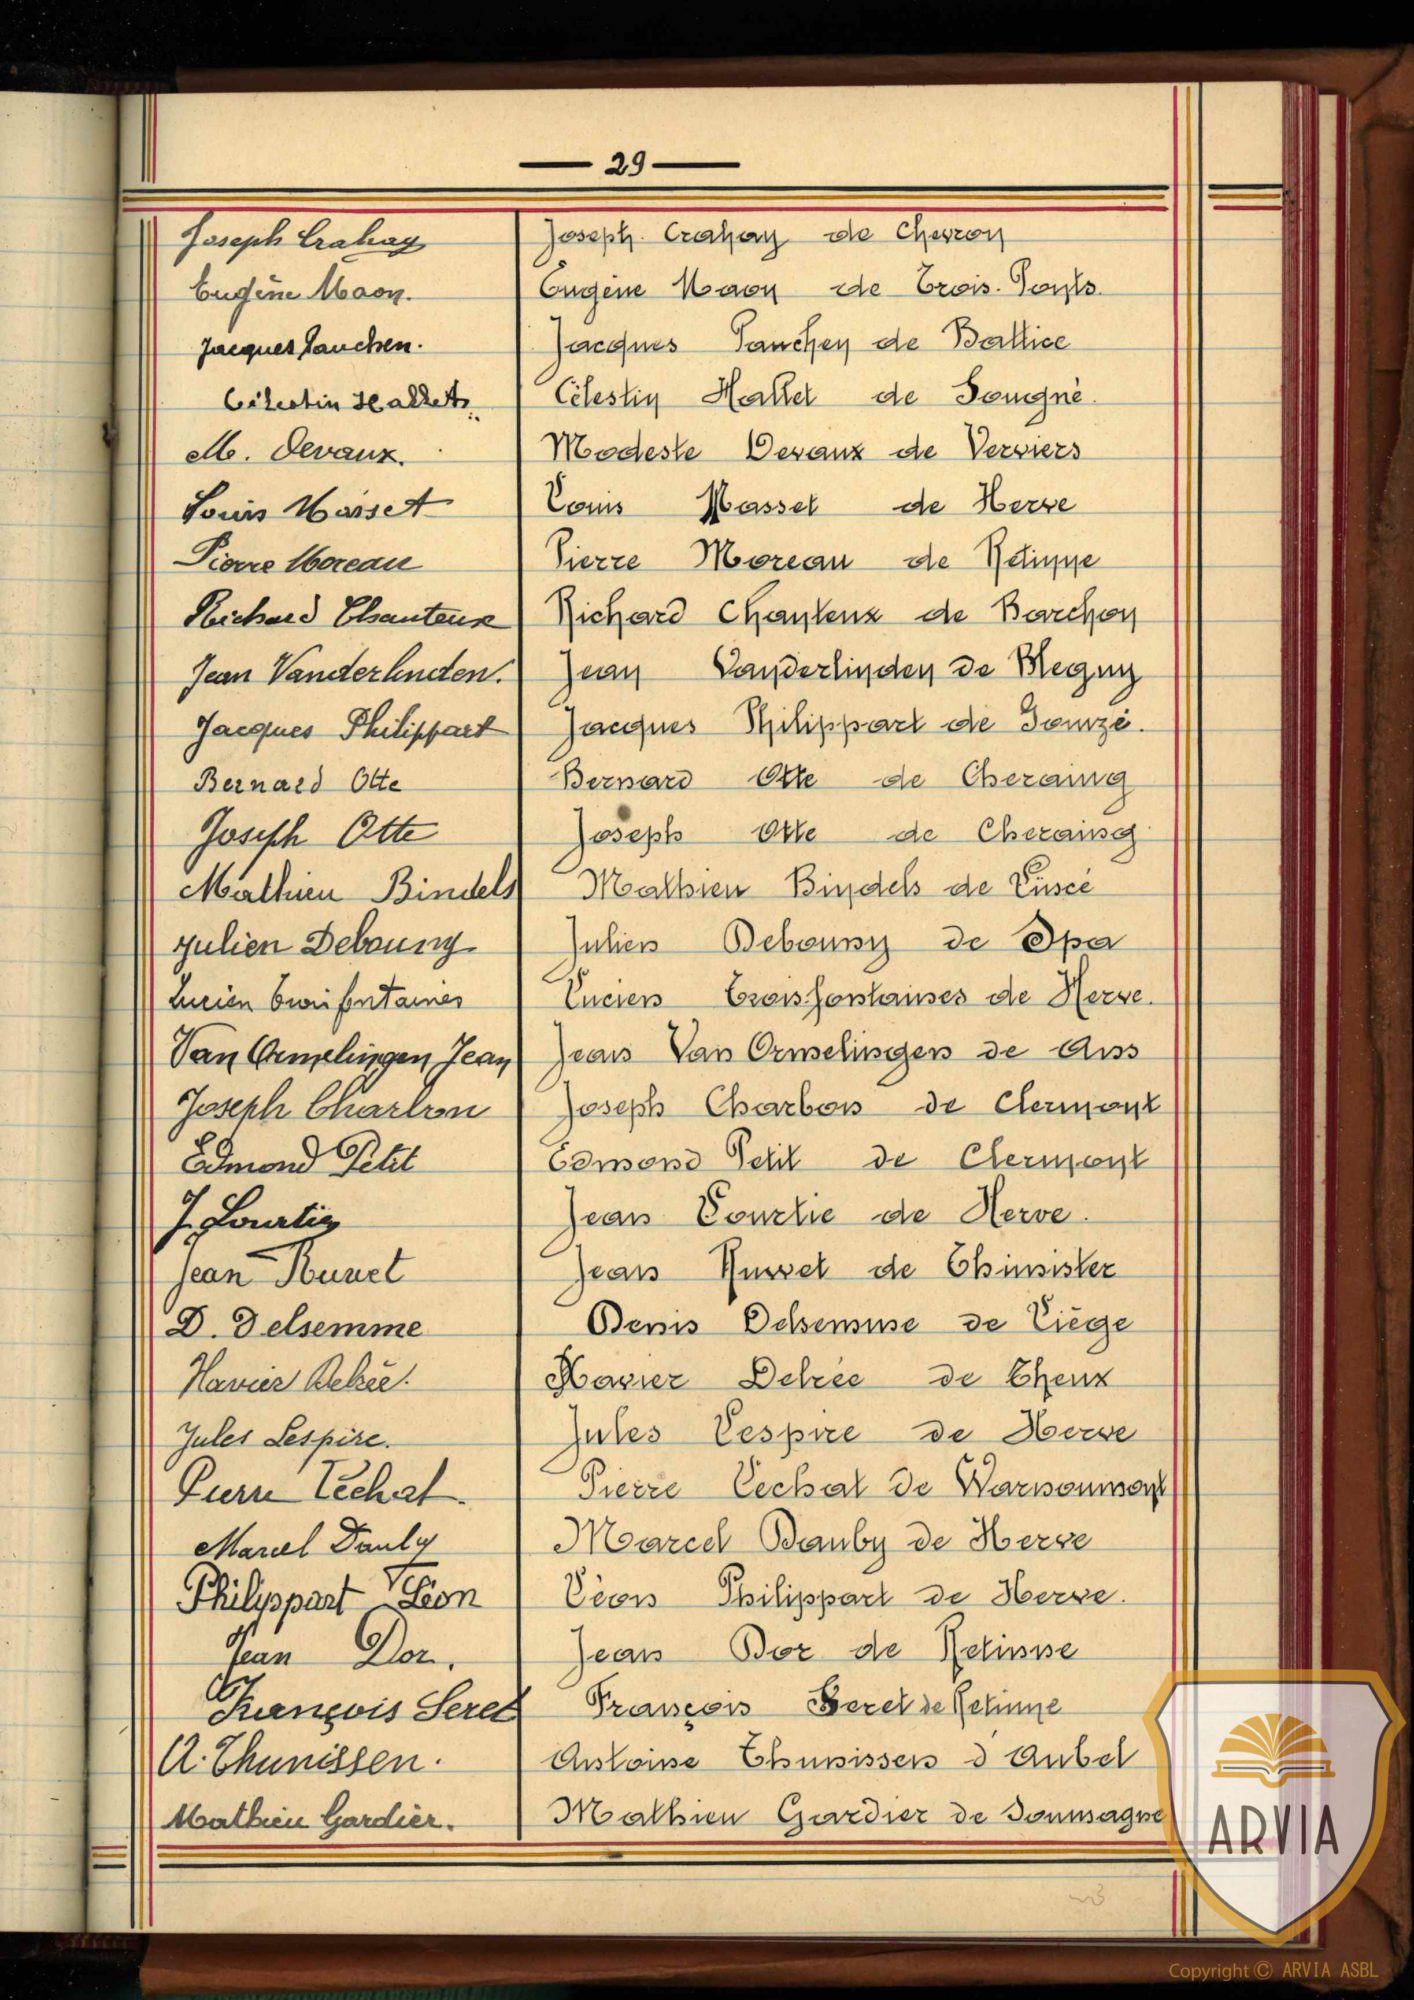 — 29 —
Joseph Crahay Joseph Crahay de Chevron
Eugène Maon. Eugène Maon de Trois-Ponts.
Jacques Panchen. Jacques Panchen de Battice
Célestin Hallet Célestin Hallet de Sougné.
M. Devaux. Modeste Devaux de Verviers
Louis Masset Louis Masset de Herve
Pierre Moreau Pierre Moreau de Retinne
Richard Chanteux Richard Chanteux de Barchon
Jean Vanderlinden. Jean Vanderlinden de Blegny
Jacques Philippart Jacques Philippart de Gomzé.
Bernard Otte Bernard Otte de Cheraing
Joseph Otte Joseph Otte de Cheraing
Mathieu Bindels Mathieu Bindels de Lincé
Julien Debouny Julien Debouny de Spa
Lucien Troisfontaines Lucien Troisfontaines de Herve.
Van Ormelingen Jean Jean Van Ormelingen de Ans
Joseph Charbon Joseph Charbon de Clermont
Edmond Petit Edmond Petit de Clermont
J. Lourtie Jean Lourtie de Herve.
Jean Ruwet Jean Ruwet de Thimister
D. Delsemme Denis Delsemme de Liège
Xavier Delrée. Xavier Delrée de Theux
Jules Lespire. Jules Lespire de Herve
Pierre Léchat. Pierre Lechat de Warnoumont
Marcel Dauby Marcel Dauby de Herve
Philippart Léon Léon Philippart de Herve.
Jean Dor. Jean Dor de Retinne
François Seret François Seret de Retinne
A. Thunissen. Antoine Thunissen d'Aubel
Mathieu Gardier. Mathieu Gardier de Soumagne
ARVIA
Copyright © ARVIA ASBL